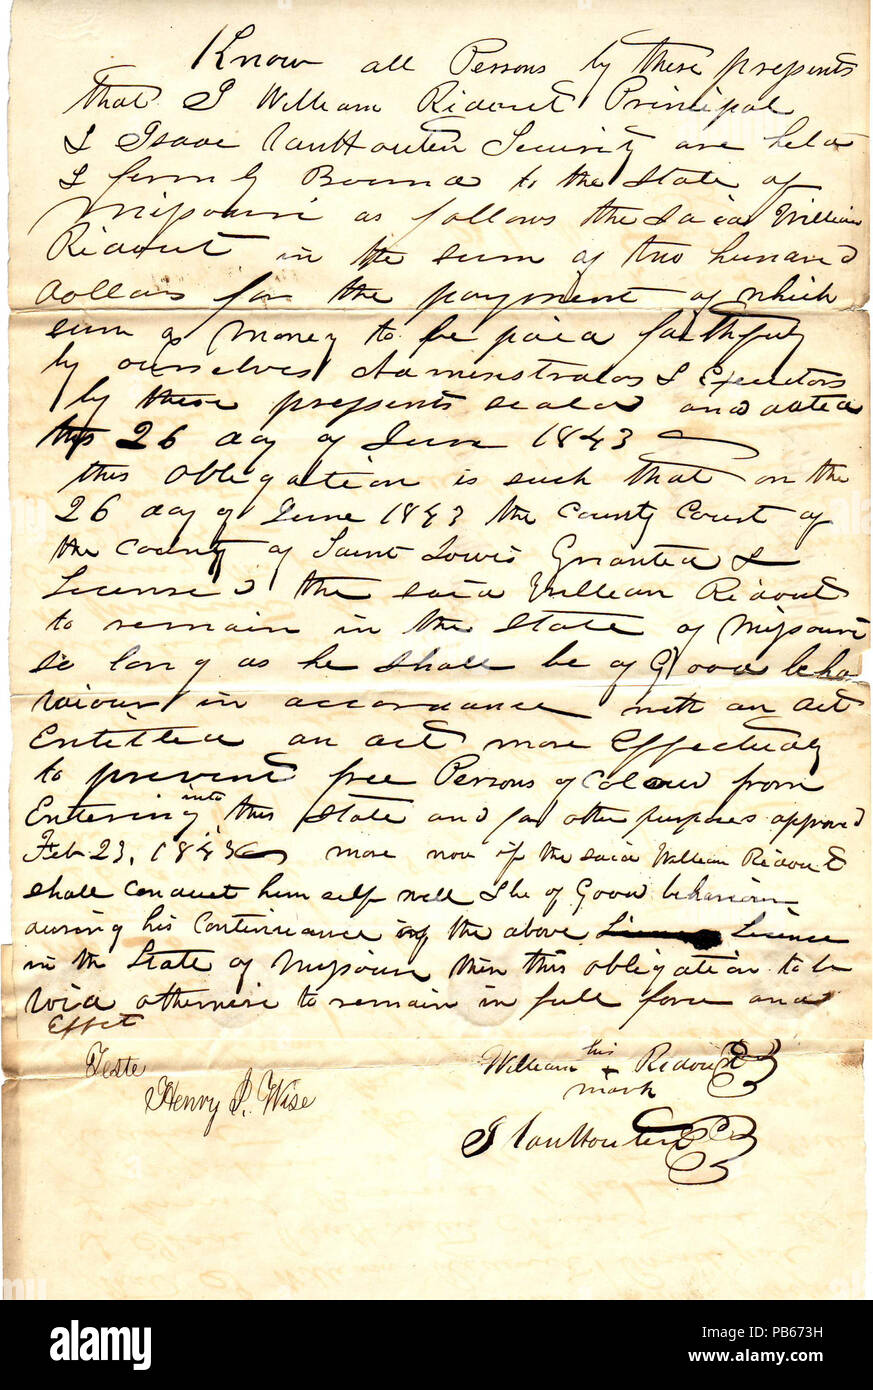 Know all Persons by these presents
that I William Ridout Principal
& Isaac VanHouten Security are held
& firmly Bound to the State of
Missouri as follows the Said William
Ridout in the sum of two hundred
dollars for the payment of which
sum of Money to be paid faithfully
by ourselves Administrators & Executors
by these presents sealed and dated
this 26 day of June 1843
this obligation is such that on the
26 day of June 1843 the County Court of
the County of Saint Louis Granted &
License d the said William Ridout
to remain in the State of Missouri
so long as he shall be of Good beha
viour in accordance with an act
Entitled an act more Effectually
to prevent free Persons of Colour from
Entering into this State and for other purposes approved
Feb 23, 1843 now if the said William Ridout
shall conduct himself well & be of Good behaviour
during his Continuance in the above License
in the State of Missouri then this obligation to be
void otherwise to remain in full force and
Effect
Teste
Henry S. Wise
William his + mark Ridout
I VanHouten
alamy
Image ID: PB673H
www.alamy.com